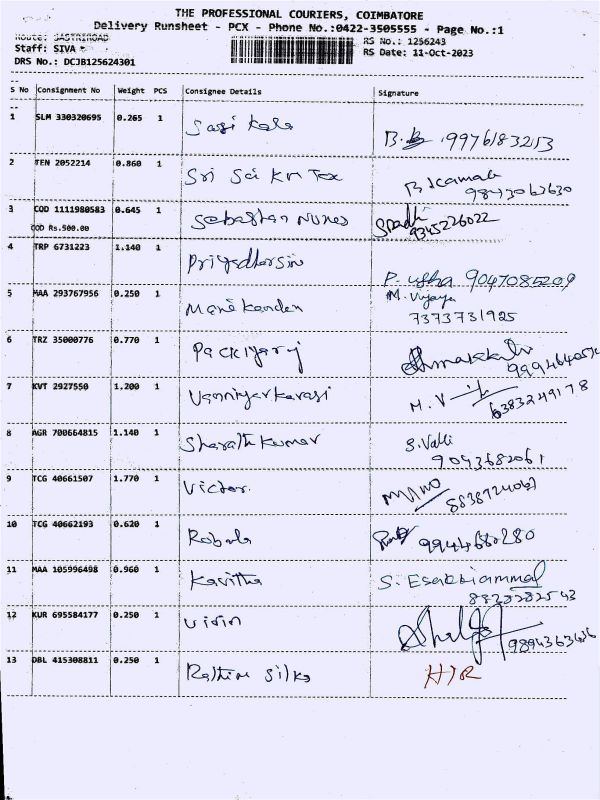 THE PROFESSIONAL COURIERS, COIMBATORE
Delivery Runsheet - PCX - Phone No.:0422-3505555 - Page No.:1
Route: SASTRIROAD
RS No.: 1256243
Staff: SIVA
RS Date: 11-Oct-2023
DRS No.: DCJB125624301
S No Consignment No Weight PCS Consignee Details Signature
1 SLM 330320695 0.265 1 Sasi Kala
B.B 9976183213
2 TEN 2052214 0.860 1 Sri Sai Km Tex
B. Kamala
9843062630
3 COD 1111980583 0.645 1 Sebastian Nunes
COD Rs.500.00
9345226022
4 TRP 6731223 1.140 1 Priyadharsini
P. Usha 9047085209
5 MAA 293767956 0.250 1 Manikandan
M. Vijaya
7373731925
6 TRZ 35000776 0.770 1 Packiyaraj
7 KVT 2927550 1.200 1 Vanniyarkarasi
M. V
6383249178
8 AGR 700664815 1.140 1 Sharathkumar
S. Valli
9043682061
9 TCG 40661507 1.770 1 Victor.
10 TCG 40662193 0.620 1
11 MAA 105996498 0.960 1 Kavitha
S. Esakkiammal
12 KUR 695584177 0.250 1
13 DBL 415308811 0.250 1 Silks